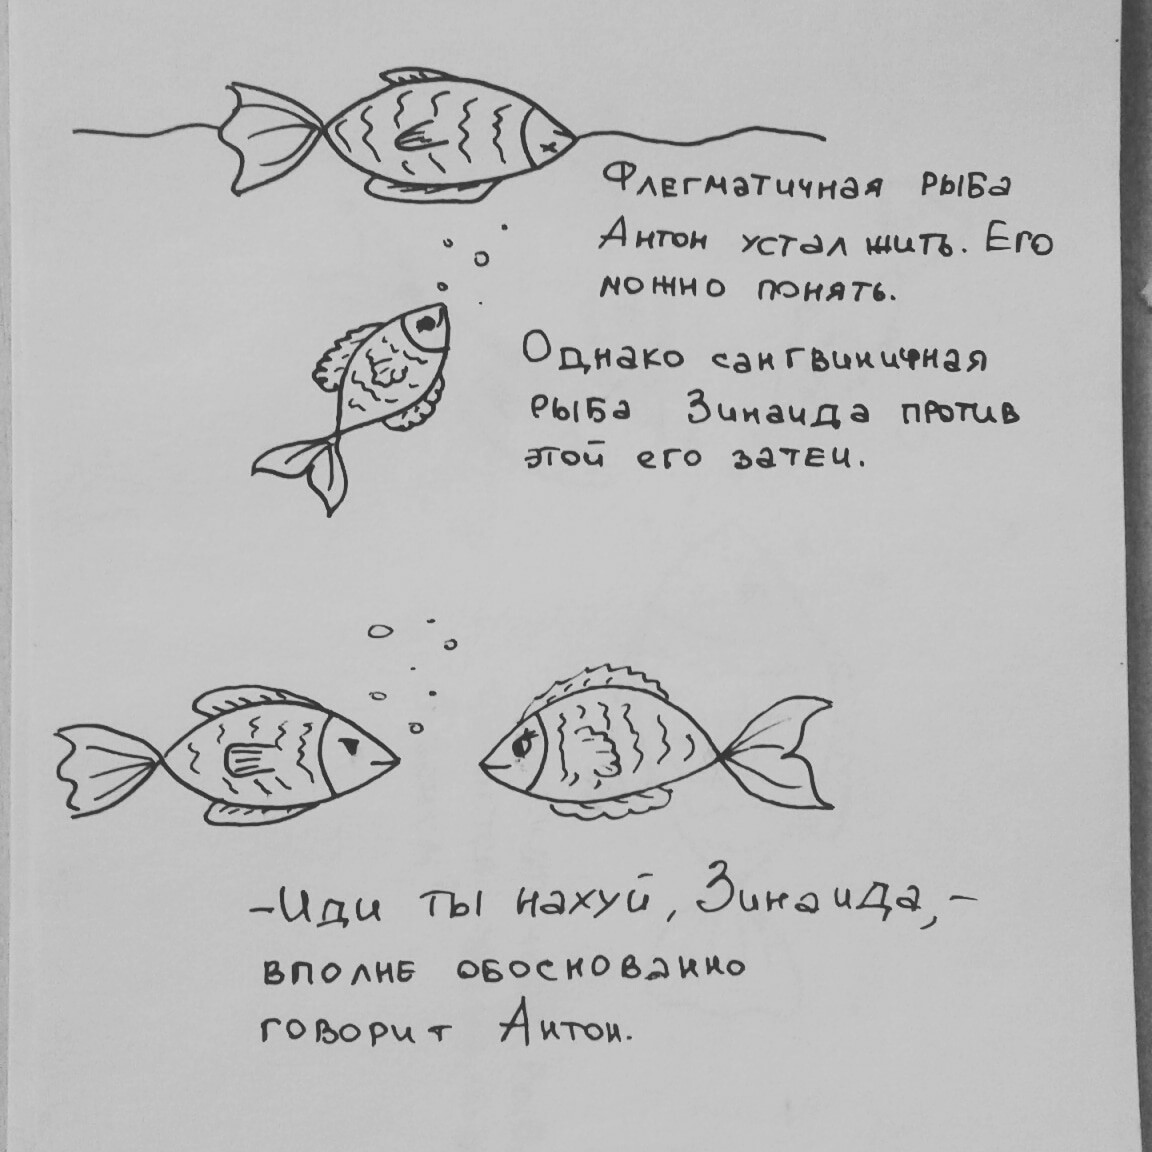 Флегматичная рыба
Антон устал жить. Его
можно понять.
Однако сангвиничная
рыба Зинаида против
этой его затеи.
-Иди ты нахуй, Зинаида,-
вполне обоснованно
говорит Антон.